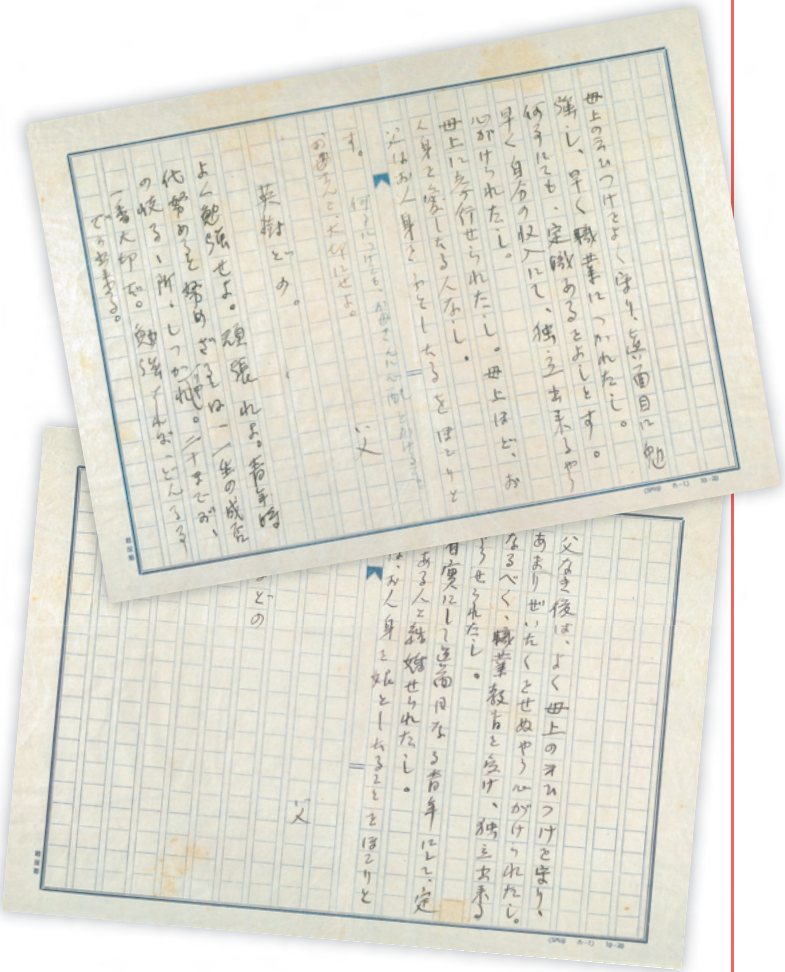 母上の云ひつけをよく守り、真面目に勉
強し、早く職業につかれたし。
何事にても、定職あるをよしとす。
早く自分の収入にて、独立出来るやう
心がけられたし。
母上に孝行せられたし。母上ほど、お
人身を愛したる人なし。
父はお人身を子としたるをほこりと
す。
何事につけても、お母さんに心配をかけ
お母さんを大切にせよ。
父
英樹どの。
よく勉強せよ。頑張れよ。青年時
代努めると努めざるとは、一生の成否
の岐るゝ所、しつかれ。二十までが、
一番大切だ。勉強すれば、どんなる
でも出来る。
父なき後は、よく母上の云ひつけを守り、
あまりぜいたくをせぬやう心がけられたし。
なるべく、職業教育を受け、独立出来る
せられたし。
実にして真面目なる青年にして、定
ある人と結婚せられたし。
お人身を娘としたることをほこりと
父
どの